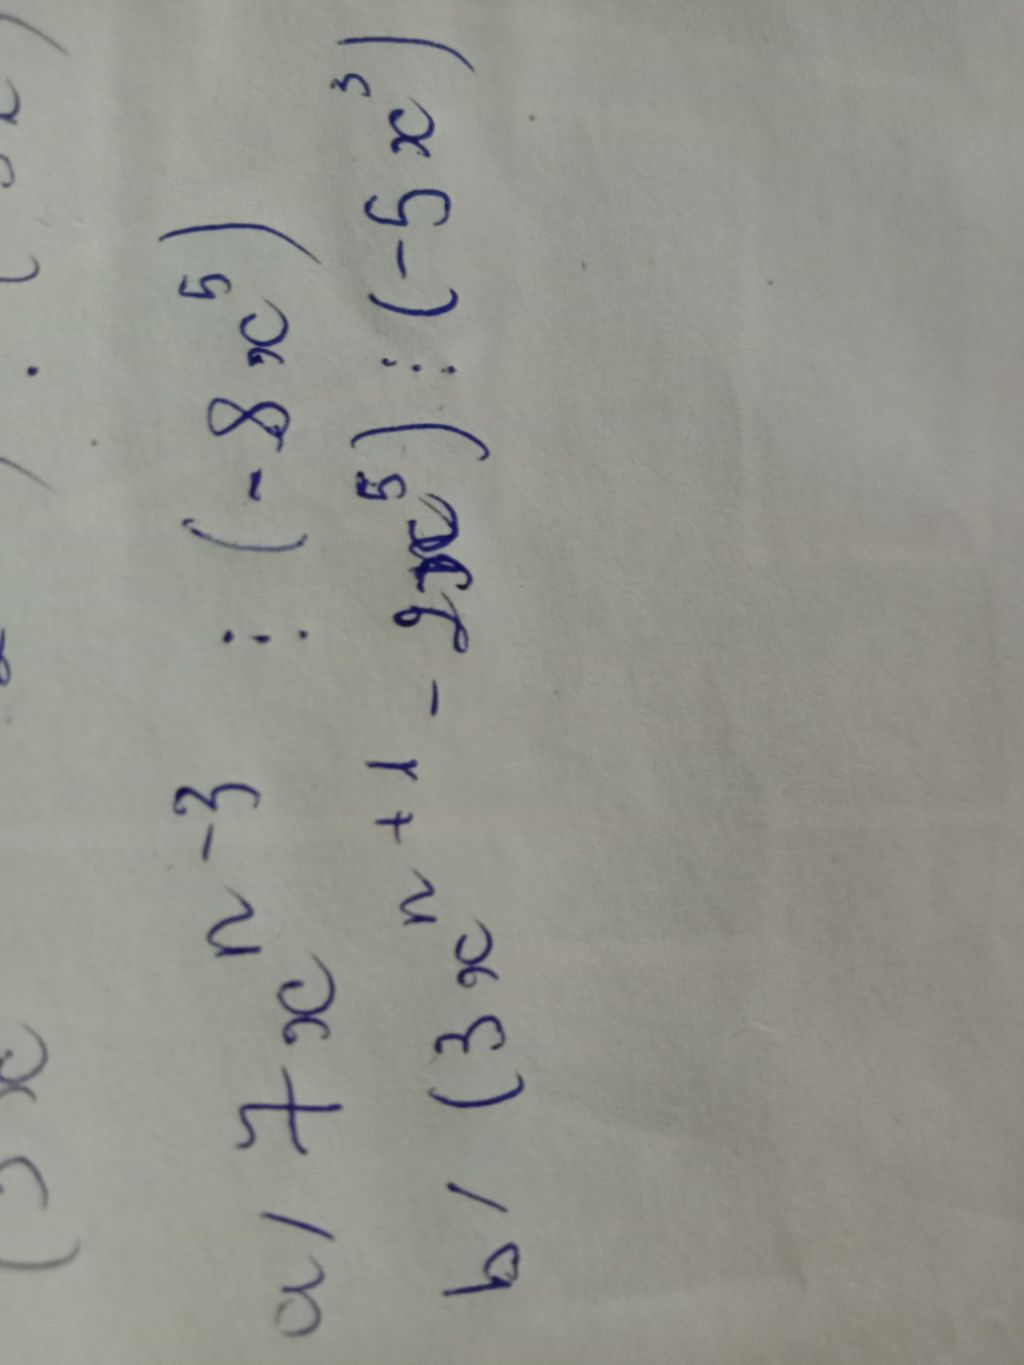 a/ 7x^{n-3} ⋮ (-8x^5)
b/ (3x^{n+1} - 2x^5) ⋮ (-5x^3)